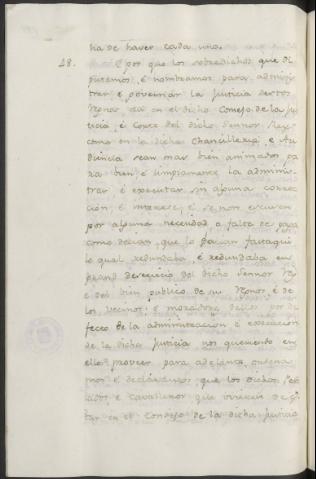 ha de haver cada uno.
18. E por que los sobredichos que di
putemos, é nombramos para adminis
trar é governar la Justicia destos
Reynos assi en el dicho Consejo de la Jus
ticia, é Corte del dicho Sennor Rey
como en la dicha Chancilleria é Au
diencia sean mas bien animados pa
ra bien é limpiamente la adminis
trar é executar sin alguna
é interese, é se non escusen
por alguna necesidad, é falta de paga
como decian que lo facian fastaqui
lo qual redundaba, é redundaba en
grand deservicio del dicho Sennor Rey
é del bien publico de sus Reynos, é de
los vecinos é moradores dellos por de
fecto de la administracion é execucion
de la dicha Justicia nos queriendo en
ello proveer para adelante ordena
mos é declaramos que los dichos Per
lados é Cavalleros que ovieren de es
tar en el Consejo de la dicha Justicia